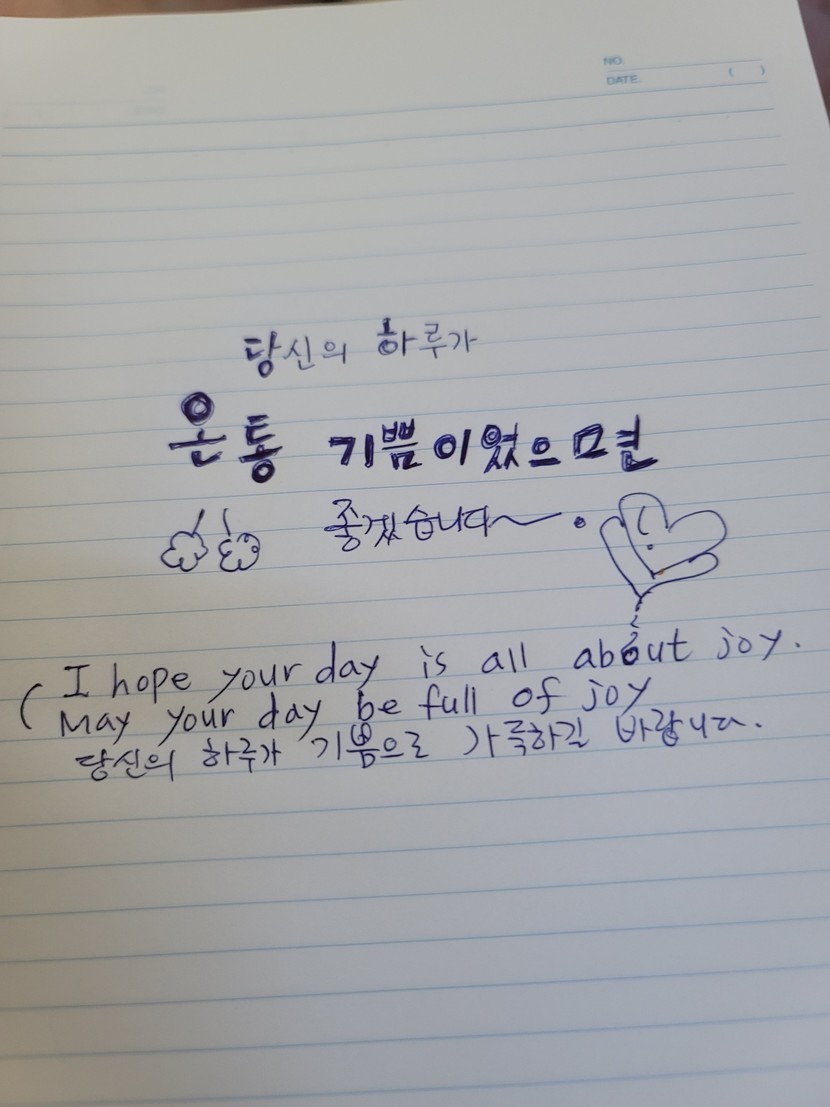 NO.
DATE. ( )
당신의 하루가
온통 기쁨이었으면
좋겠습니다~.
( I hope your day is all about joy.
May your day be full of joy
당신의 하루가 기쁨으로 가득하길 바랍니다.